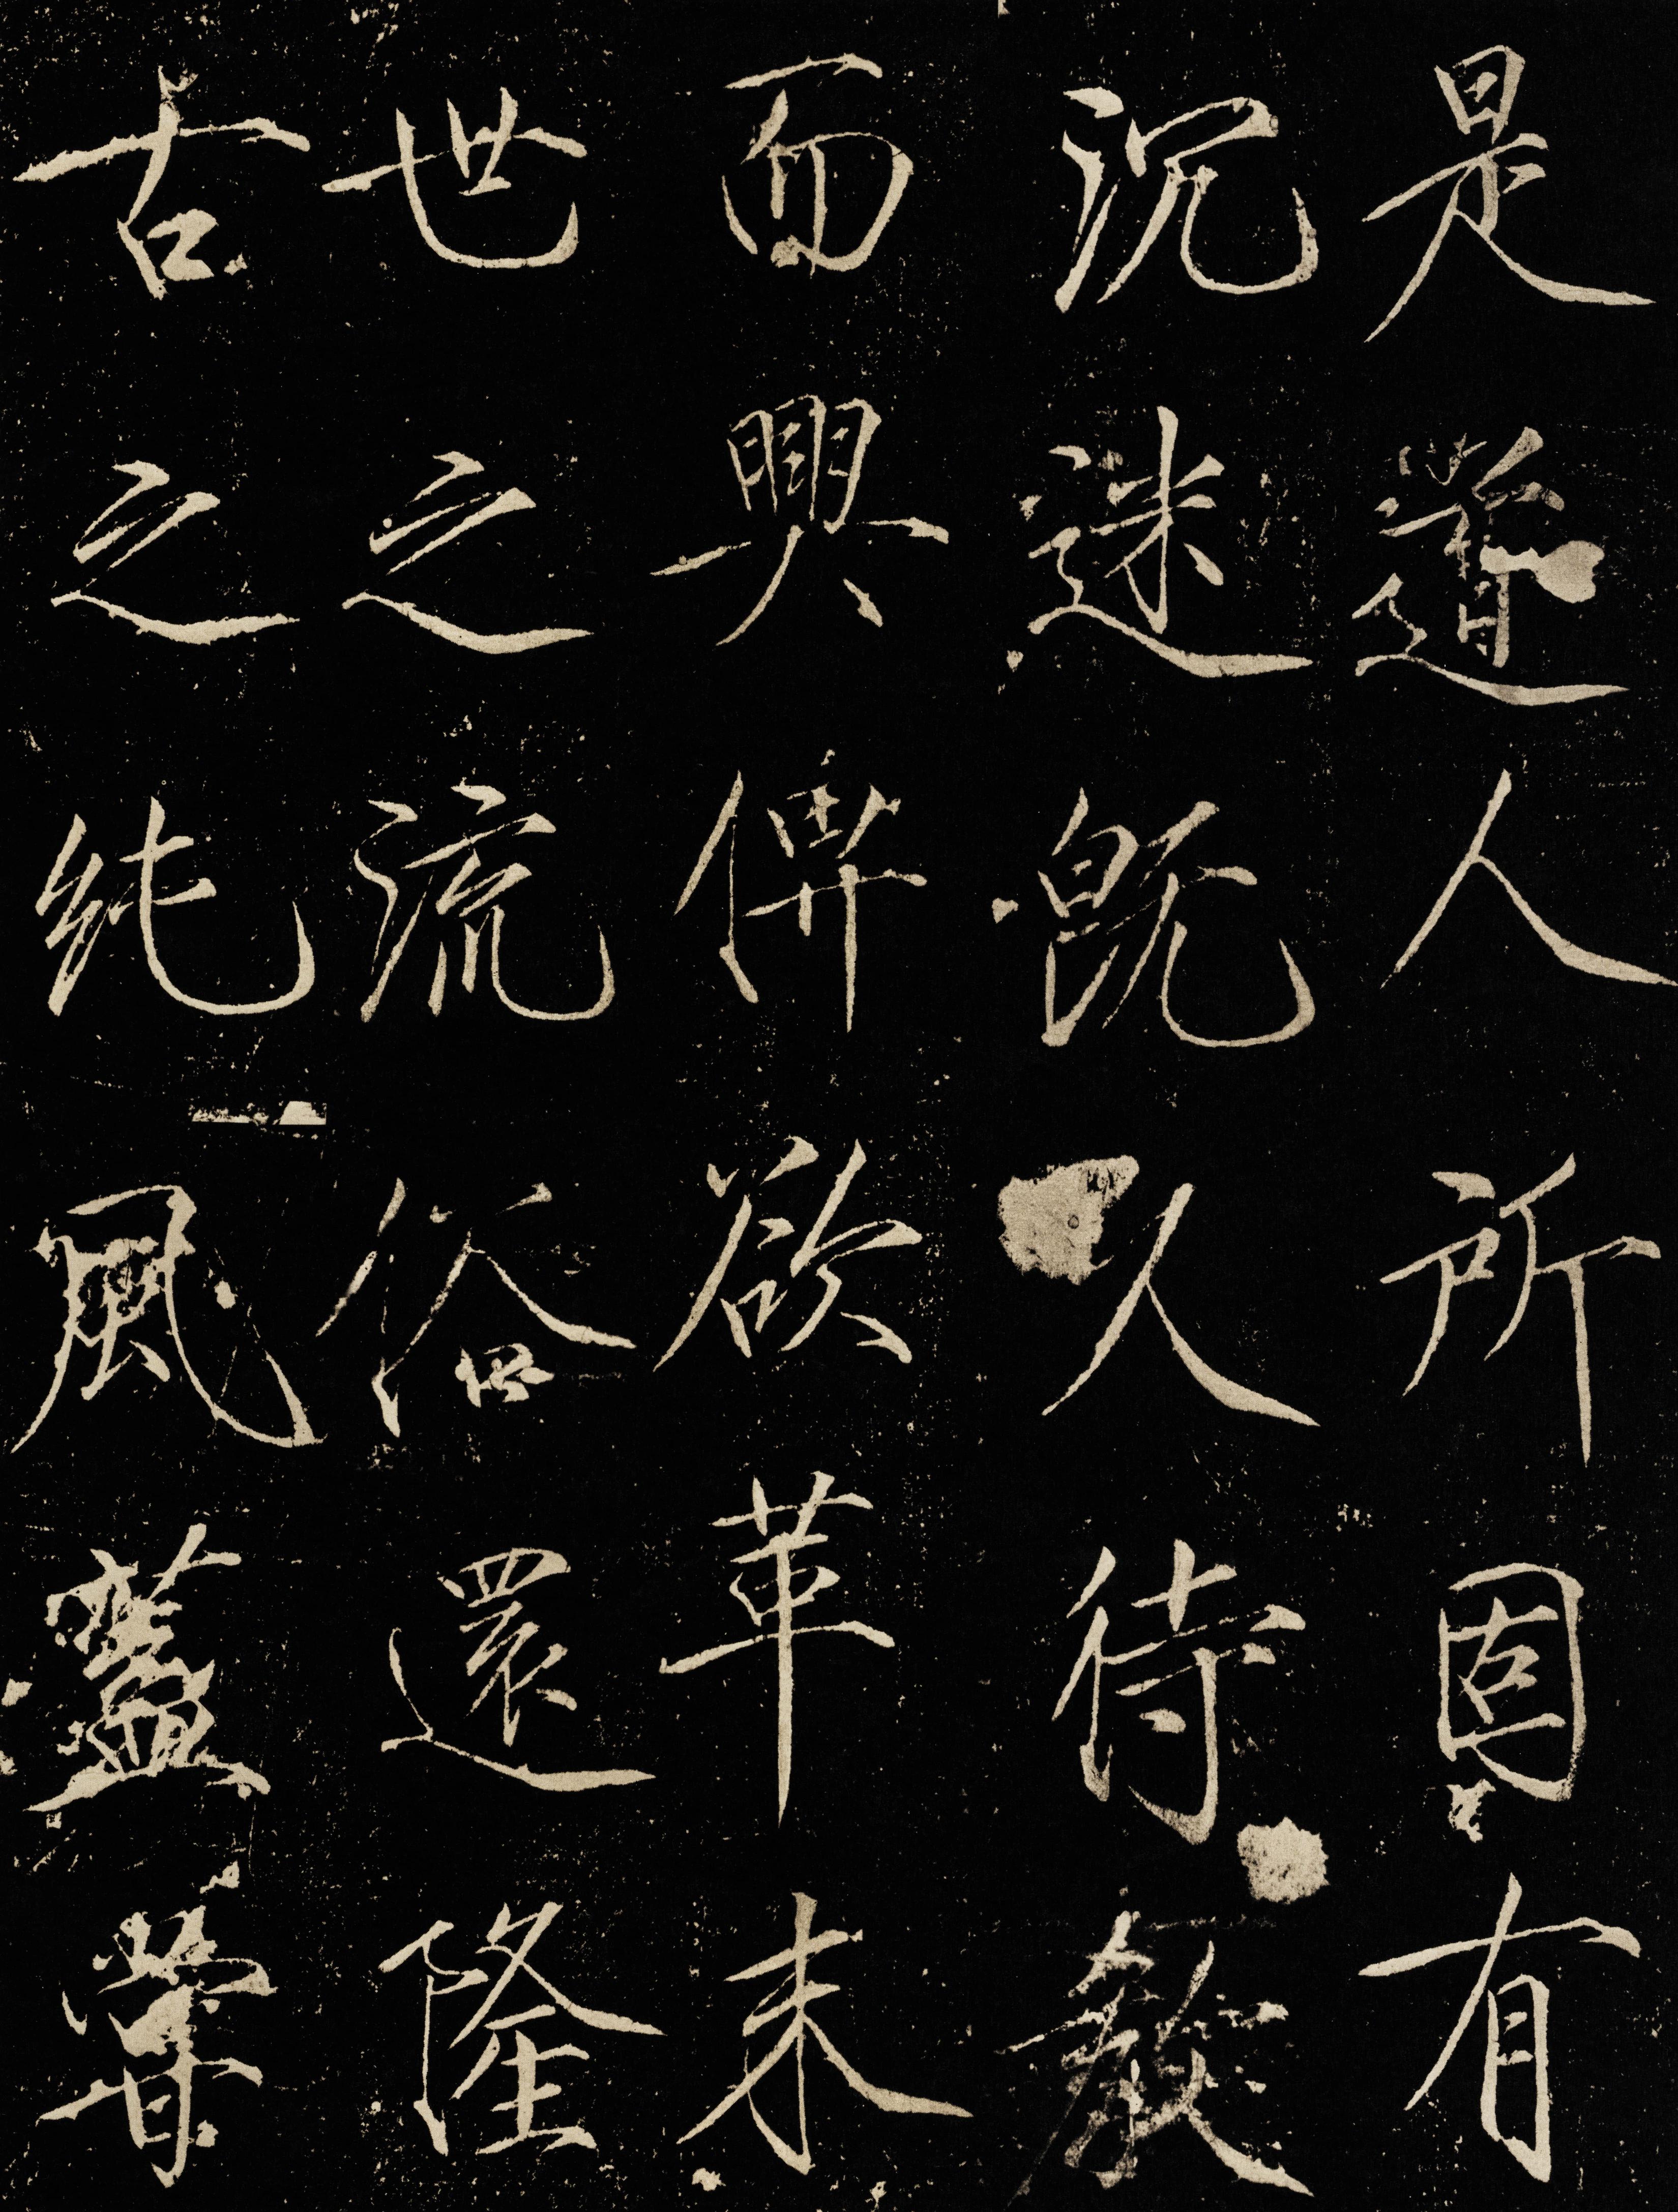 是道人所固有
沉迷既久待教
而興俾欲革末
世之流俗還隆
古之純風蓋嘗